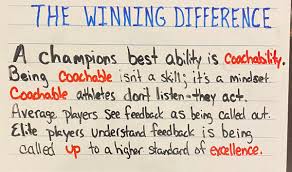 THE WINNING DIFFERENCE
A champions best ability is coachability.
Being coachable isnt a skill; it's a mindset
Coachable athletes don't listen-they act.
Average players see feedback as being called out.
Elite players understand feedback is being
called up to a higher standard of excellence.